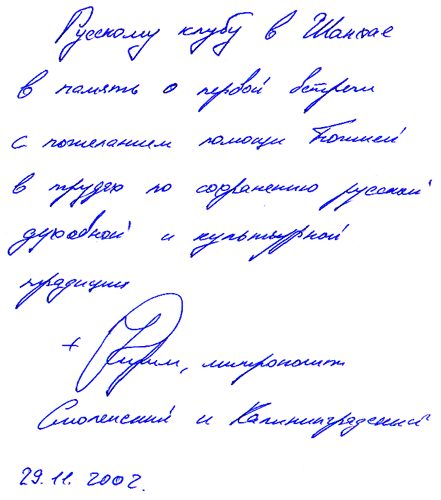 Русскому клубу в Шанхае
в память о первой встречи
с пожеланием помощи Божией
в трудах по сохранению русской
духовной и культурной
традиции
+ Кирилл, митрополит
Смоленский и Калининградский
29.11.2002.